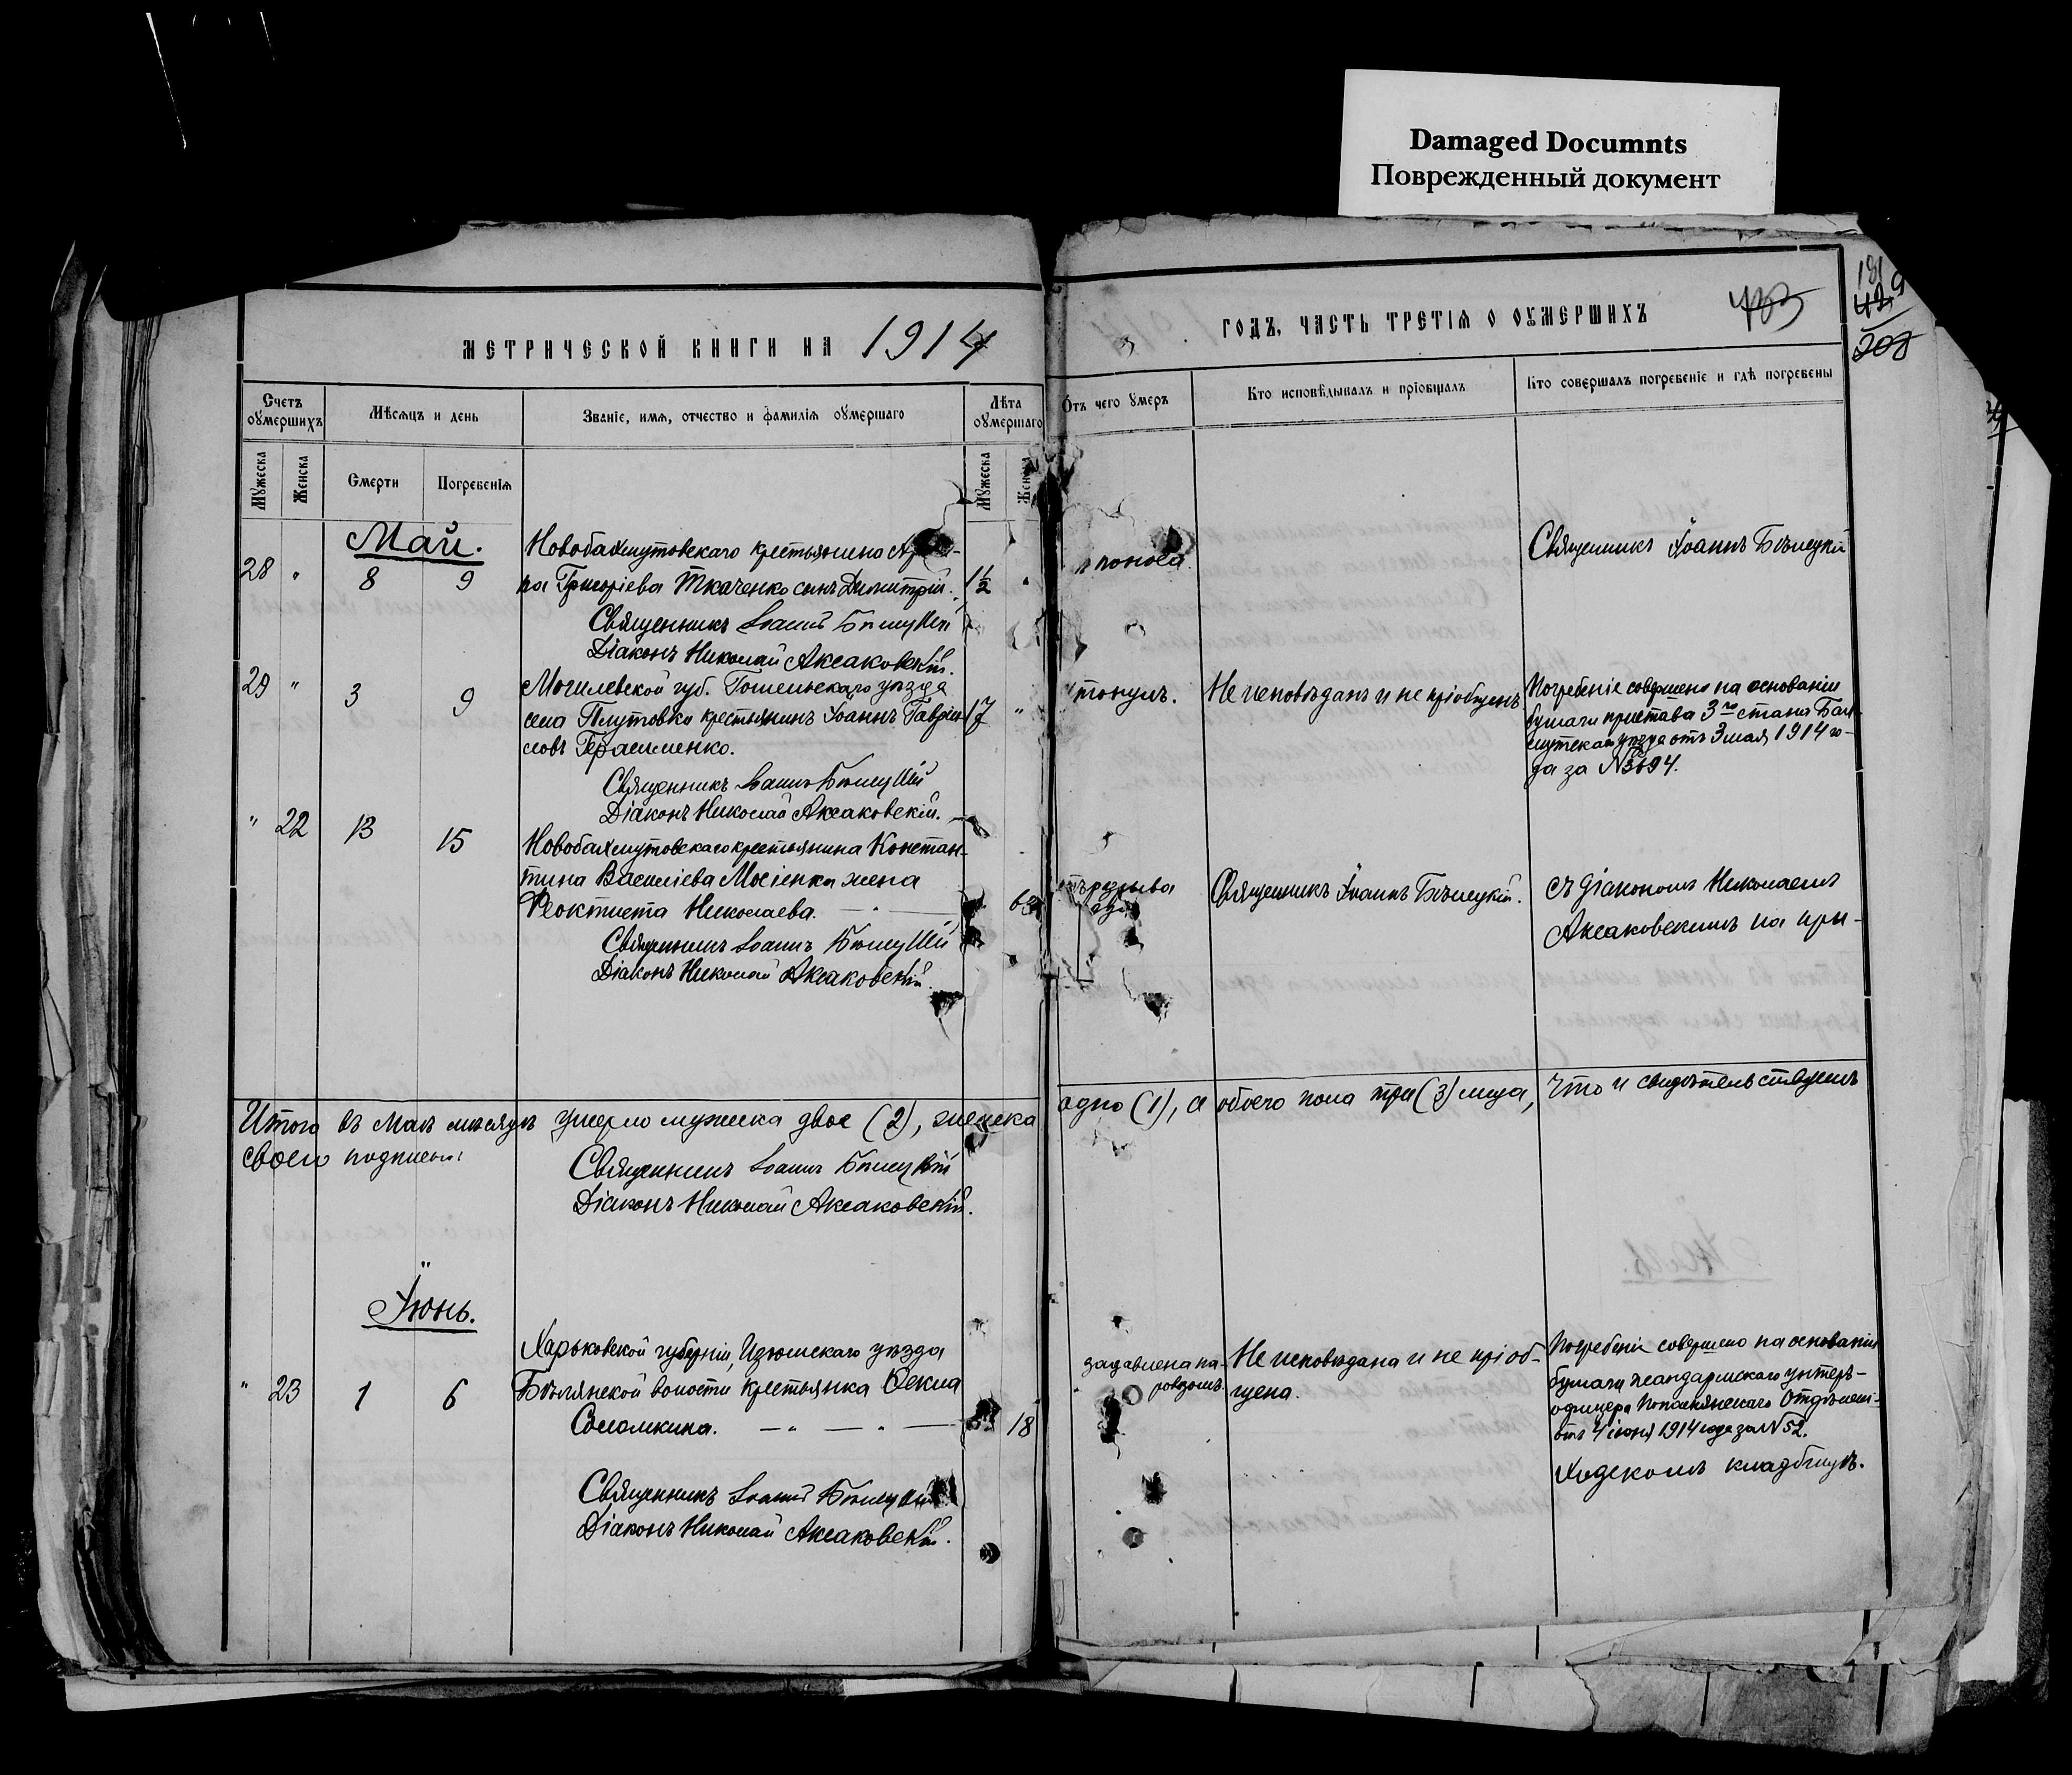 Damaged Documnts
Поврежденный документ
МЕТРИЧЕСКОЙ КНИГИ НА 1914
Счетъ оумершихъ
Мѣсяцъ и день
Званіе, имя, отчество и фамилія оумершаго
Лѣта оумершаго
Мужеска
Женска
Смерти
Погребенія
Мужеска
Женска
Май.
28 " 8 9 Новобахмутовскаго крестьянина
на Григоріева Ткаченко сынъ Димитрій. 1½ "
Священникъ Іоаннъ Бѣлецкій
Діаконъ Николай Аксаковскій.
29 " 3 9 Могилевской губ. Гомельскаго уѣзда
села Плутовки крестьянинъ Іоаннъ Гаврии- 17 "
ловъ Герасименко.
Священникъ Іоаннъ Бѣлецкій
Діаконъ Николай Аксаковскій.
" 22 13 15 Новобахмутовскаго крестьянина Констан-
тина Василіева Мосіенка жена
Феоктиста Николаева. — " —
Священникъ Іоаннъ Бѣлецкій
Діаконъ Николай Аксаковскій.
Итого въ маѣ мѣсяцѣ умерло мужеска двое (2), женска
своею подписью:
Священникъ Іоаннъ Бѣлецкій
Діаконъ Николай Аксаковскій.
Іюнь.
Харьковской губерніи, Изюмскаго уѣзда
" 23 1 6 Бѣлянской волости крестьянка Фекла
Соломкина. — " — " — 18
Священникъ Іоаннъ Бѣлецкій
Діаконъ Николай Аксаковскій.
ГОДЪ, ЧАСТЬ ТРЕТІЯ О ОУМЕРШИХЪ
181
208
Отъ чего умеръ
Кто исповѣдывалъ и пріобщалъ
Кто совершалъ погребеніе и гдѣ погребены
поноса
Священникъ Іоаннъ Бѣлецкій
утонулъ.
Не исповѣданъ и не пріобщенъ
Погребеніе совершено на основаніи
бумаги пристава 3го стана Бах-
мутскаго уѣзда отъ 3 мая 1914 го-
да за №3694.
Священникъ Іоаннъ Бѣлецкій.
съ діакономъ Николаемъ
Аксаковскимъ на при-
одно (1), а обоего пола три (3) лица, что и свидѣтельствуемъ
задавлена па-
ровозомъ.
Не исповѣдана и не пріоб-
щена.
Погребеніе совершено на основаніи
бумаги жандармскаго унтеръ-
офицера Отдѣлені-
отъ 4 іюня 1914 года за №52.
ходскомъ кладбищѣ.